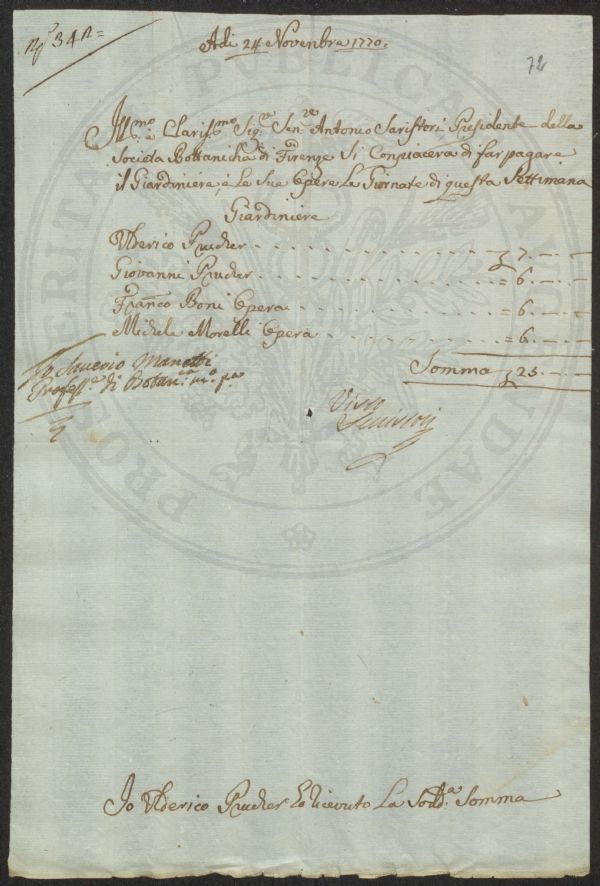 N.º 342=
Adi 24 Novenbre 1770.
72
Ill.mo e Clariss.mo Sig.re Sen.re Antonio Saristori Presidente della
Societa Bottanicha di Firenze Si Conpiacera di far pagare
il Giardiniere, e Le Sue Opere La Giornate di questa Settimana
Giardiniere
Ulderico Prucher - - - - - - - - 7. - -
Giovanni Prucher - - - - - - - = 6. - -
Franco Boni Opera - - - - - - = 6. - -
Michele Morelli Opera - - - - - = 6. - -
Somma 25 - - -
Io Saverio Manetti
Profess.e di Botan.ca m.o p.a
Io Ulderico Prucher ho ricevuto La Sodd.a Somma
PROSPERITATI PUBLICAE AUGENDAE